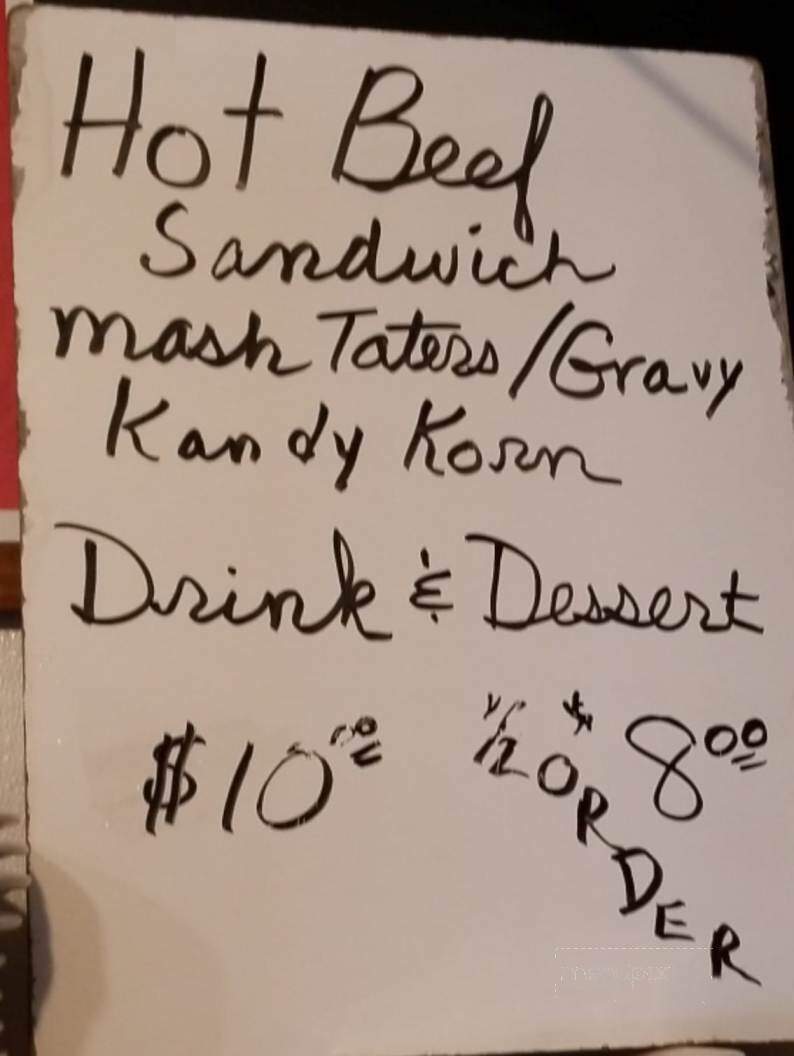 Hot Beef
Sandwich
mash Taters/Gravy
Kandy Korn
Drink & Dessert
$10.00 1/2 ORDER $8.00